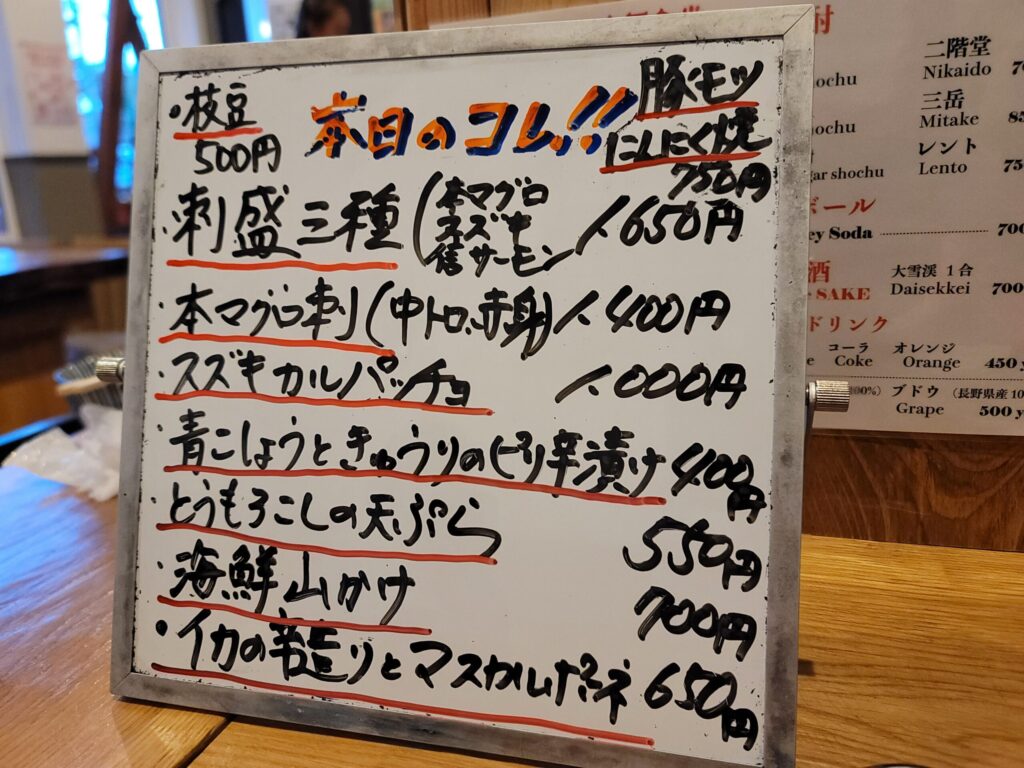 ・枝豆
500円
本日のコレ!!
豚モツ
にんにく焼
750円
・刺盛三種(本マグロ
スズキ
信サーモン
1.650円
・本マグロ刺(中トロ、赤身)1.400円
・スズキカルパッチョ 1.000円
・青こしょうときゅうりのピリ辛漬け 400円
・とうもろこしの天ぷら 550円
・海鮮山かけ 700円
・イカの 造りとマスカルポーネ 650円
酎
二階堂
ochu Nikaido 70
三岳
ochu Mitake 85
レント
gar shochu Lento 75
ボール
ey Soda 700
酒 大雪渓 1合
SAKE Daisekkei 700
ドリンク
コーラ オレンジ
Coke Orange 450 y
00%) ブドウ (長野県産10
Grape 500 y